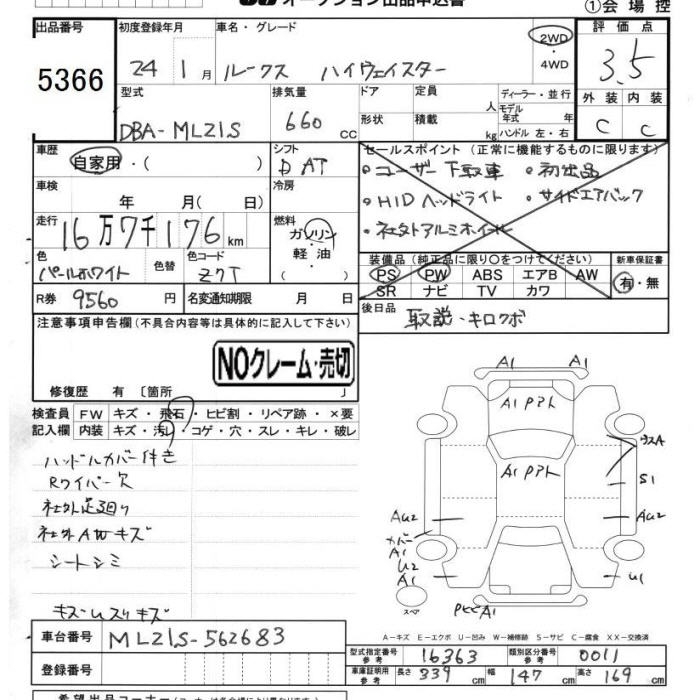 オークション出品申込書
①会場控
出品番号 初度登録年月 車名・グレード 評価点
5366 24 1月 ルークス ハイウェイスター 2WD・4WD 3.5
型式 排気量 ドア 定員 人 ディーラー・並行 外装 内装
DBA-ML21S 660cc 形状 積載 kg モデル年式 年式 ハンドル 左・右 C C
車歴 自家用・( ) シフト D AT
セールスポイント (正常に機能するものに限ります)
・ユーザー下取車 ・初出品
・HIDヘッドライト ・サイドエアバック
・社外アルミホイール
車検 年 月( 日) 冷房
走行 16万7千176km 燃料 ガソリン・軽油・( )
色 パールホワイト 色替 色コード Z7T
装備品 (純正品に限り○をつけてください) 新車保証書
PS PW ABS エアB AW 有・無
SR ナビ TV カワ
R券 9560円 名変通知期限 月 日
後日品 取説・キロクボ
注意事項申告欄(不具合内容等は具体的に記入して下さい)
NOクレーム・売切
修復歴 有 〔箇所 〕
検査員 FW キズ・飛石・ヒビ割・リペア跡・×要
記入欄 内装 キズ・汚れ・コゲ・穴・スレ・キレ・破レ
ハンドルカバー付き
Rワイパー欠
社外足廻り
社外AWキズ
シートシミ
キズ・USリキズ
A1
A1 Pアト
A1 Pアト
S1
AU2
AU2
カバーA1
U2
A1
U1
スペア
A1
A-キズ E-エクボ U-凹み W-補修跡 S-サビ C-腐食 XX-交換済
車台番号 ML21S-562683
型式指定番号 参考 16363 類別区分番号 参考 0011
登録番号
車庫証明用 参考 長さ 339cm 幅 147cm 高さ 169cm
希望出品コーナー